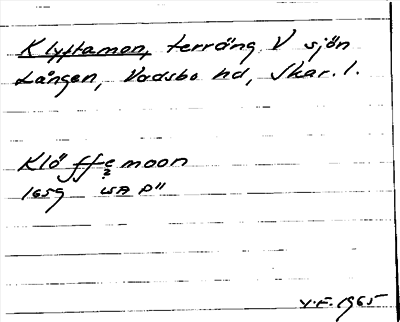 Klyftamon, terräng V sjön
Lången, Vadsbo hd, Skar. l.
Klöffe moon
1659 LSA P11
V.F. 1965